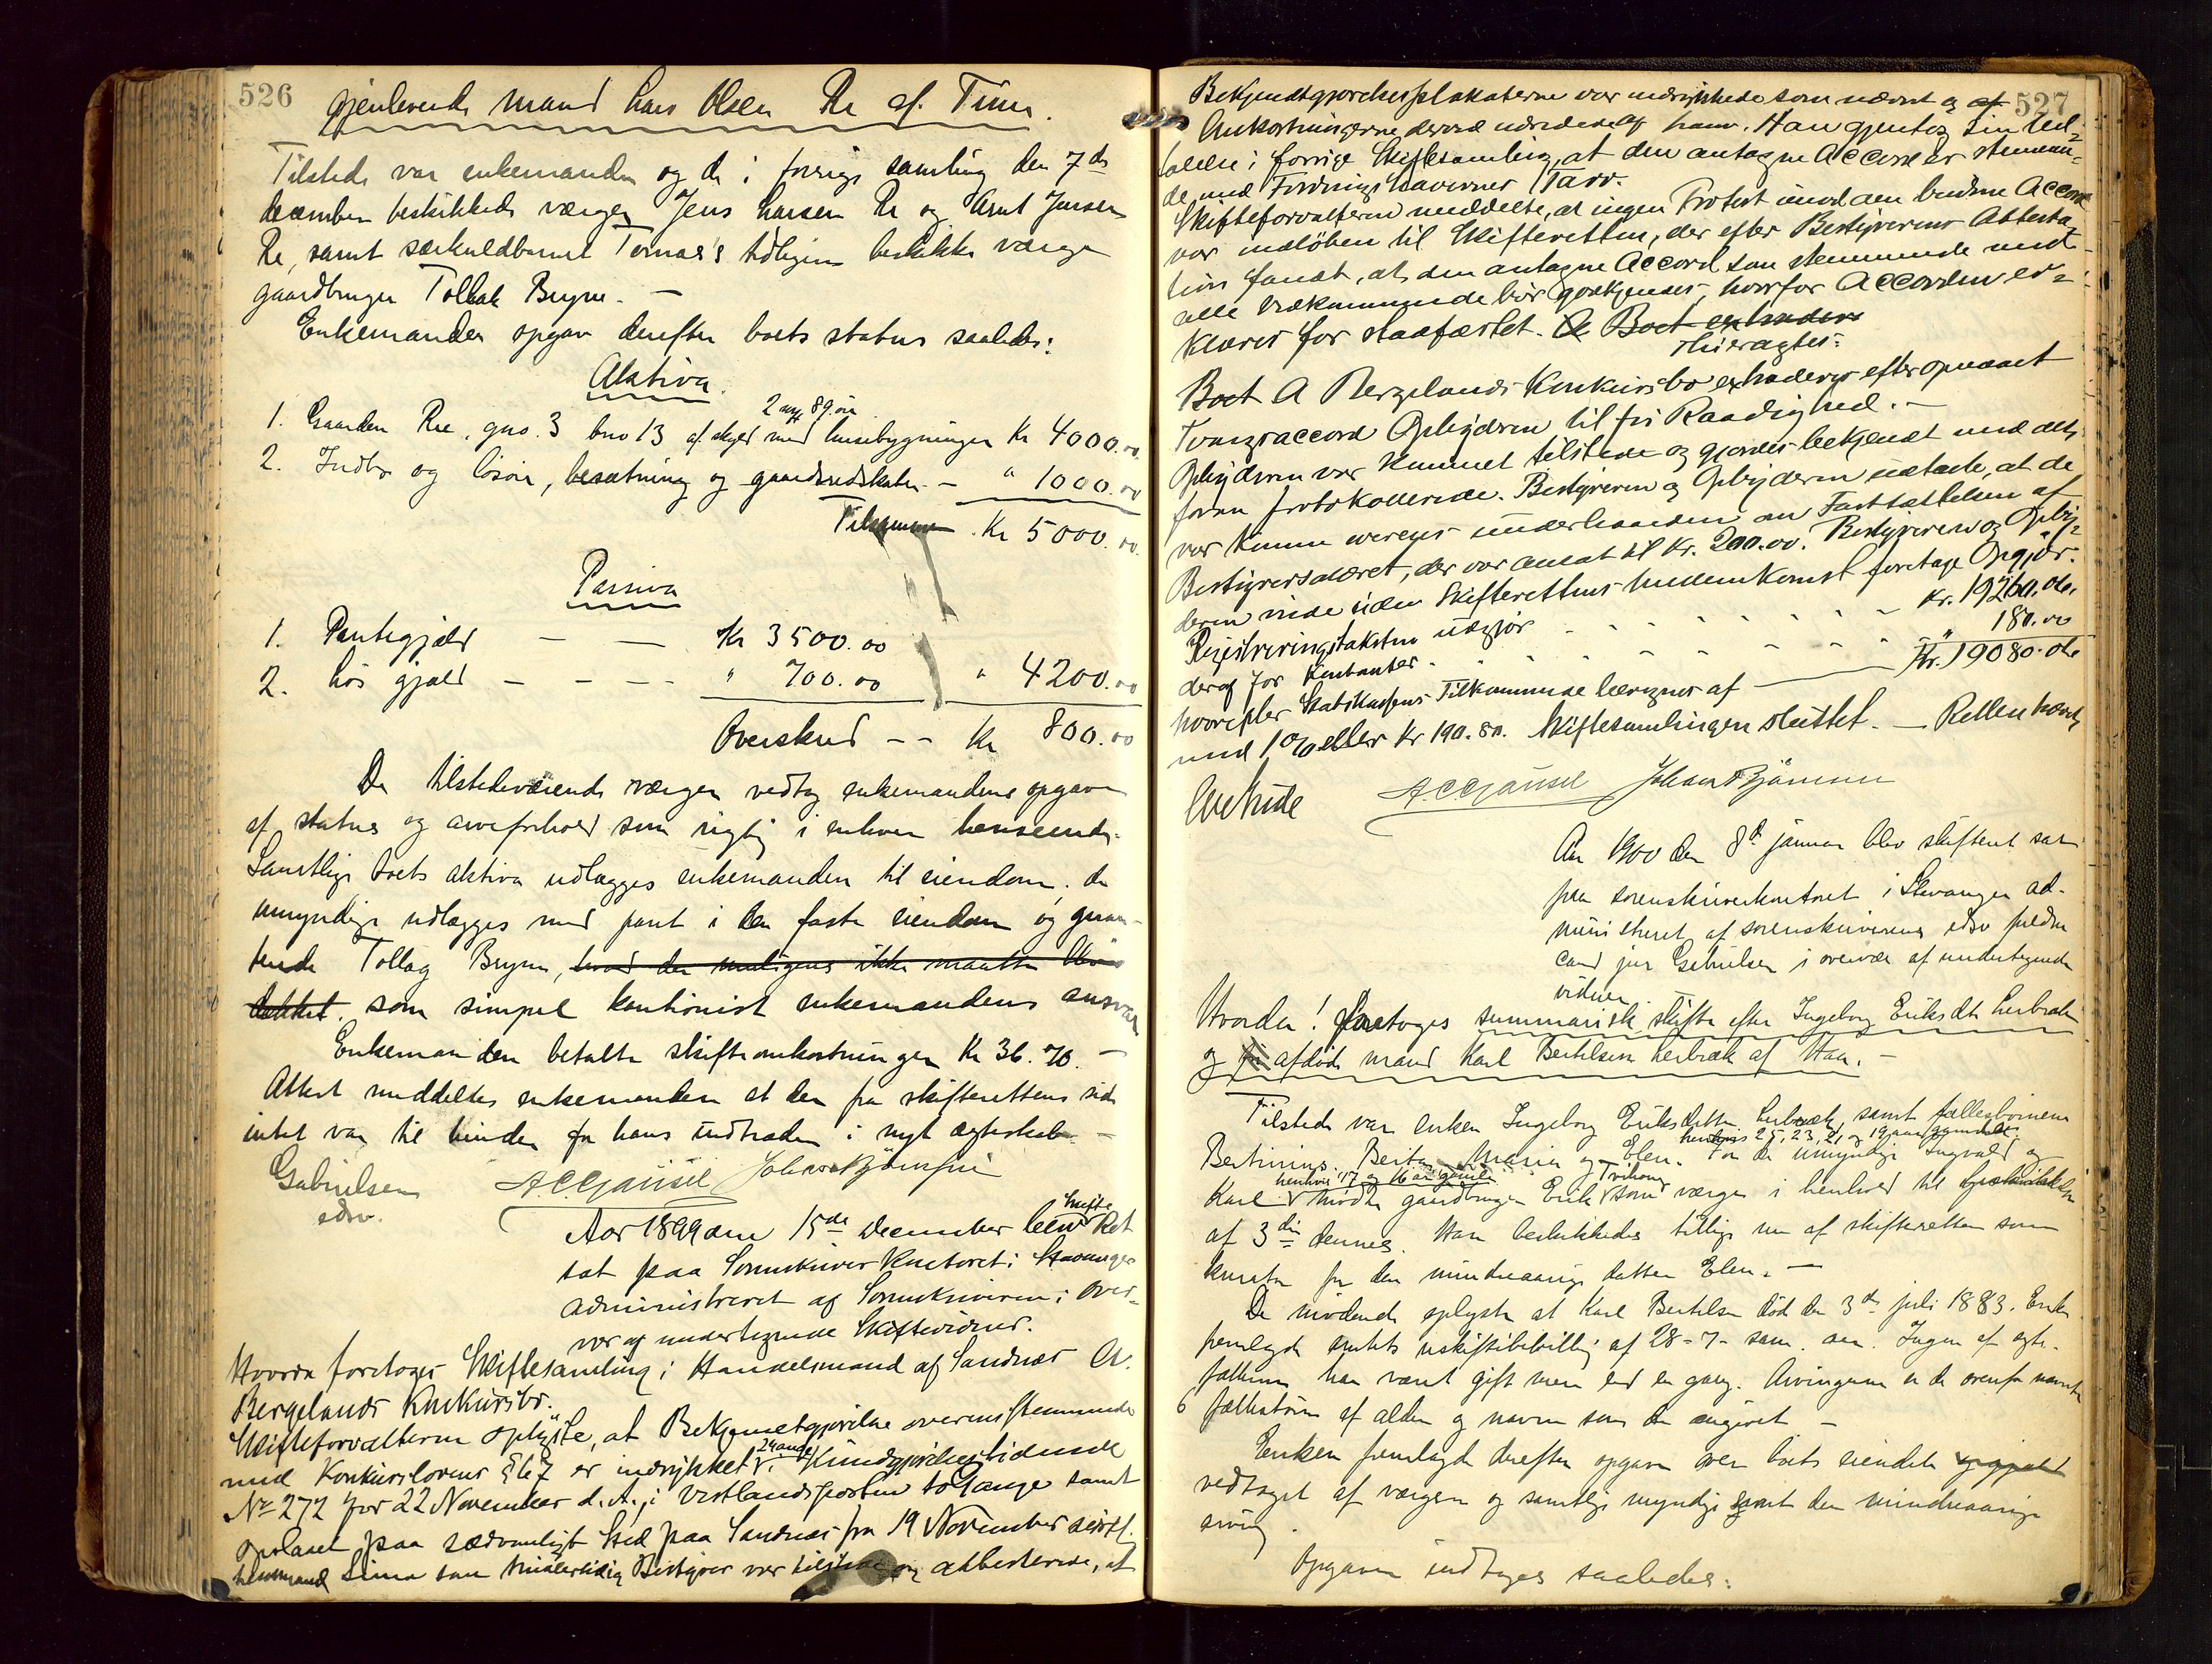 526
gjenlevende mand Lars Olsen Re af Time.
Tilstede var enkemanden og de i forrige samling den 7de
december beskikkede værger Jens Larsen Re og Arnt Jensen
Re, samt særkuldbarnet Tomas's tidligere beskikkede værge
gaardbruger Tollak Bryne. —
Enkemanden opgav derefter boets status saaledes:
Aktiva.
2 mrk 89 øre
1. Gaarden Re, gno. 3 bno 13 af skyld med husebygninger Kr 4000.00
2. Indbo og løsøre, besætning og gaardsredskaber — " 1000.00
Tilsammen Kr 5000.00
Passiva
1. Pantegjæld — — Kr 3500.00
2. Løs gjæld — — — " 700.00 " 4200.00
Overskud — — Kr 800.00
De tilstedeværende værger vedtog enkemandens opgave
af status og arveforhold som rigtig i enhver henseende.
Samtlige boets aktiva udlægges enkemanden til eiendom, de
umyndige udlægges med pant i den faste eiendom og garan-
terede Tollag Bryne, hvad der muligens ikke maatte blive
dækket. som simpel kautionist enkemandens ansvar
Enkemanden betalte skifteomkostninger Kr 36.70. —
Attest meddeltes enkemanden at der fra skifterettens side
intet var til hinder for hans indtræden i nyt ægteskab. —
Gabrielsen A.C.Gausel Johan Bjørnsen
edsv.
Aar 1899 den 15de December blev Skifte Ret
sat paa Sorenskriver Kontoret i Stavanger
administreret af Sorenskriveren i Over-
vær af undertegnede Skiftevidner.
Hvorda foretoges Skiftesamling i Handelsmand af Sandnæs A.
Bergelands Konkursbo.
Skifteforvalteren oplyste, at Bekjendtgjørelse overensstemmende
med Konkurslovens § 67 er indrykket 2 gange i Kundgjørelsestidende
No 272 for 22 November d. A., i Vestlandsposten to Gange samt
opslaaet paa sædvanligt Sted paa Sandnæs fra 19 November sidstl.
Lensmand Sima som midlertidig Bestyrer var tilstede og attesterede, at
527
Bekjendtgjørelsesplakaterne var indrykkede som nævnt og at
Omkostningerne derved udredede af ham. Han gjentog sin Ud-
talelse i forrige Skiftesamling, at den antagne Accord er stemmen-
de med Fordringshavernes Tarv.
Skifteforvalteren meddelte, at ingen Protest imod den budne Accord
var indløben til Skifteretten, der efter Bestyrerens Attesta-
tion fandt, at den antagne Accord som stemmende med
alle Vedkommende bør godkjendes, hvorfor Accorden er-
klæres for stadfæstet. Boet extraderes
thi eragtes:
Boet A Bergelands Konkursbo extraderes efter opnaaet
Tvangsaccord Opbyderen til fri Raadighed. —
Opbyderen var kommet tilstede og gjordes bekjendt med det
foran protokollerede. Bestyreren og Opbyderen udtalte, at de
var komne overens underhaanden om Fastsættelsen af
Bestyrersalæret, der var ansat til Kr. 200.00. Bestyreren og Opby-
deren vilde uden Skifterettens Mellemkomst foretage Opgjør.
Registreringstaksten udgjør - - - - - - Kr. 19260.06.
deraf for Kontanter - - - - - - " 180.00
Kr. 19080.06
hvorefter Statskassens Tilkommende beregnes af
med 1% eller Kr 190.80. Skiftesamlingen sluttet. — Retten hævet
A.C.Gausel Johan Bjørnsen
Aar 1900 den 8de januar blev skifteret sat
paa sorenskriverkontoret i Stavanger ad-
ministreret af sorenskriverens edsv fuldm
cand jur Gabrielsen i overvær af undertegnede
vidner.
Hvorda! foretoges summarisk skifte efter Ingeborg Eriksdtr Herbræk
og afdøde mand Karl Bertelsen Herbræk af Haa. —
Tilstede var enken Ingeborg Eriksdatter Herbræk, samt fællesbørnene
henhvis 25, 23, 21 og 19 aar gamle
Bertinius, Berta, Maria og Elen. For de umyndige Ingvald og
henhvis 17 og 16 aar gamle
Karl mødte gaardbruger Erik som værge i henhold til
af 3die dennes. Han beskikkedes tillige nu af skifteretten som
kurator for den mindreaarige datter Elen. —
De mødende oplyste at Karl Bertelsen døde den 3de juli 1883. Enken
fremlagde amtets uskiftebevilling af 28-7- sam. aar. Ingen af ægte-
fællerne har været gift mere end en gang. Arvingerne er de ovenfor nævnte
6 fællesbørn af alder og navne som der angivet —
Enken fremlagde derefter opgave over boets eiendele og gjæld
vedtaget af værgen og samtlige myndige samt den mindreaarige
arving.
Opgaven indtages saaledes: